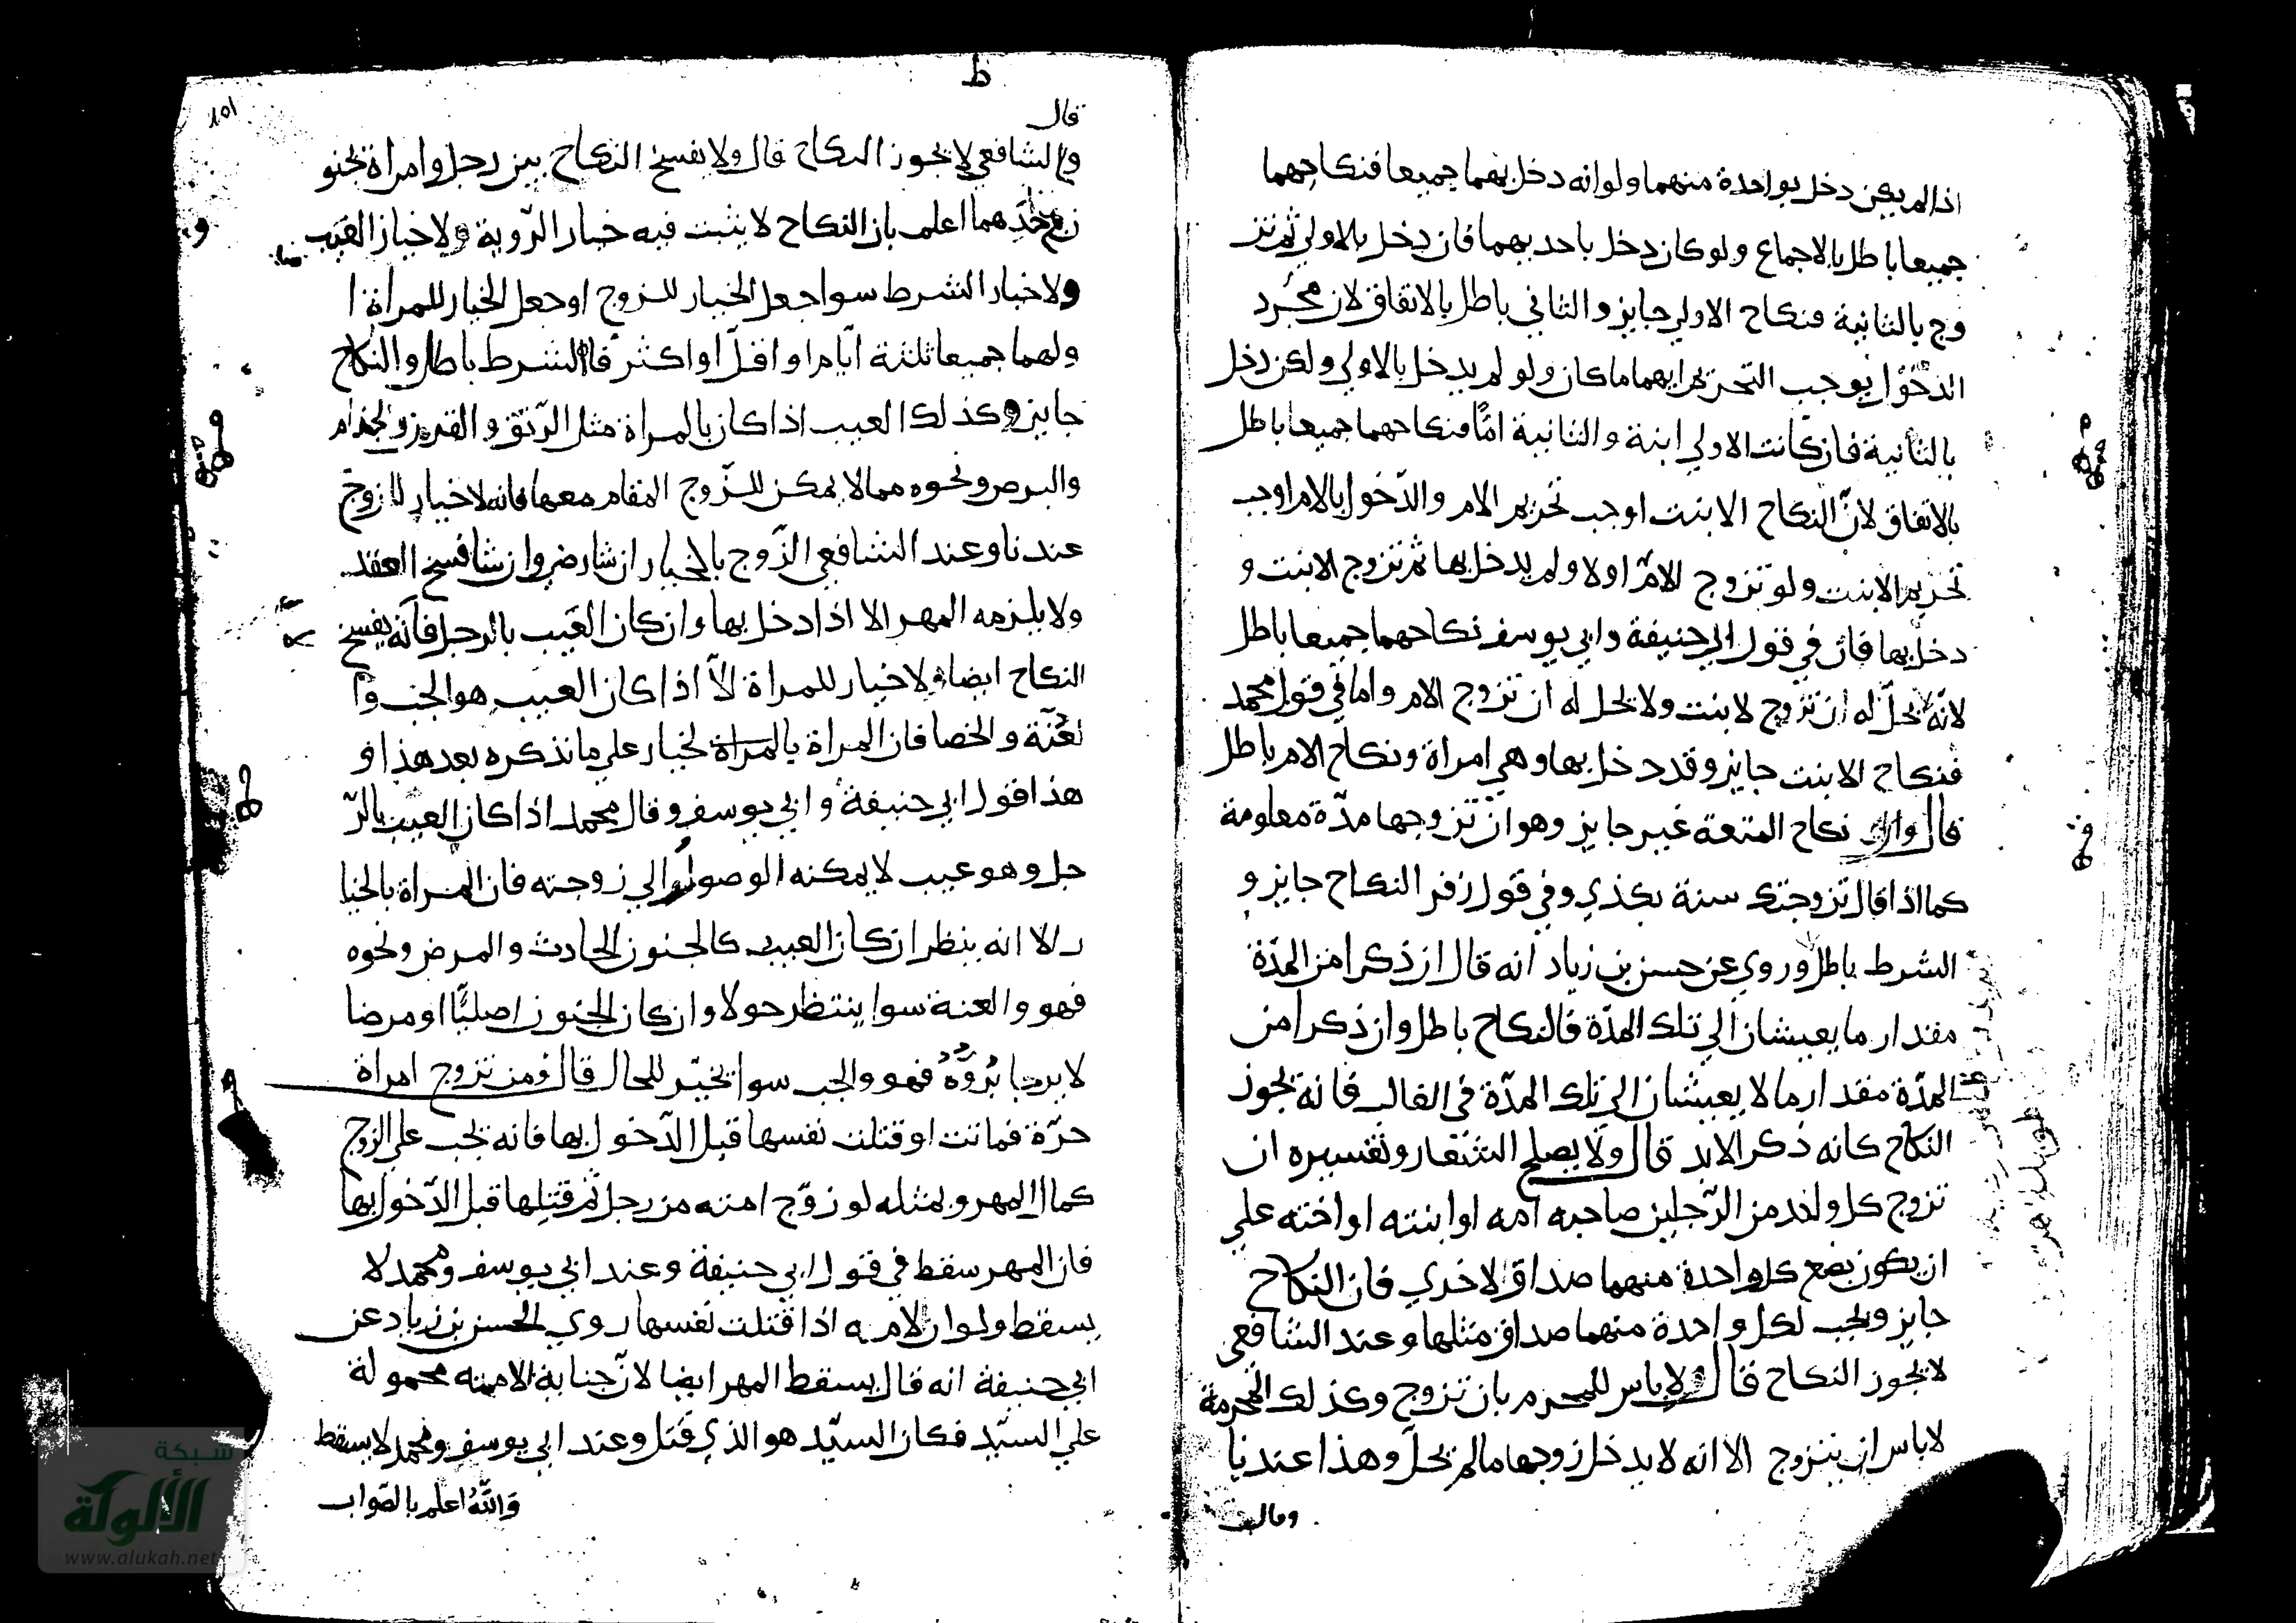 اذا لم يكن دخل بواحدة منهما ولو انه دخل بهما جميعا فنكاحهما
جميعا باطل بالاجماع ولو كان دخل باحديهما فان دخل بالاولي ثم تز
وج بالثانية فنكاح الاولي جايز والثاني باطل بالاتفاق لان مجرد
الدخول يوجب التحريم ايهما ما كان ولو لم يدخل بالاولي ولكن دخل
بالثانية فان كانت الاولي ابنة والثانية امًّا فنكاحهما جميعا باطل
بالاتفاق لانّ النكاح الابنت اوجب تحريم الام والدّخول بالام اوجب
تحريم الابنت ولو تزوج الامّ اولا ولم يدخل بها ثم تزوج الابنت و
دخل بها فان في قول ابي حنيفة وابي يوسف نكاحهما جميعا باطل
لانّه لا يحلّ له ان تزوج لابنت ولا يحل له ان تزوج الام واما في قول محمد
فنكاح الابنت جايز وقد دخل بها وهي امراة ونكاح الام باطل
قال وان نكاح المتعة غير جايز وهو ان تزوجها مدّة معلومة
كما اذا قال تزوجتك سنة بكذي وفي قول زفر النكاح جايز و
الشرط باطل وروي عن حسن بن زياد انه قال ان ذكرا من المدّة
مقدار ما يعيشان الي تلك المدّة فالنكاح باطل وان ذكرا من
المدّة مقدار ما لا يعيشان الي تلك المدّة في الغالب فانه يجوز
النكاح كانه ذكر الابد قال ولا يصلح الشغار وتفسيره ان
تزوج كل واحد من الرّجلين صاحبه امه او ابنته او اخته علي
ان يكون بضع كل واحدة منهما صداق الاخري فان النكاح
جايز ويجب لكل واحدة منهما صداق مثلها وعند الشافعي
لا يجوز النكاح قال ولا باس للمحرم بان تزوج وكذلك المحرمة
لا باس ان يتزوج الا انه لا يدخل زوجها ما لم يحلّ وهذا عندنا
وقال
ط
١٥١
قال
والشافعي لا يجوز النكاح قال ولا يفسخ النكاح بين رجل وامراة بجنو
ن احدهما اعلم بان النكاح لا يثبت فيه خيار الرّوية ولا خيار العيب
ولا خيار الشرط سوا جعل الخيار للزوج او جعل الخيار للمراة ا
ولهما جميعا ثلثة ايّام او اقلّ او اكثر فالشرط باطل والنكاح
جايز وكذلك العيب اذا كان بالمراة مثل الرّتق والقرن والجذام
والبرص ونحوه مما لا يمكن للزّوج المقام معها فانه لا خيار للزوج
عندنا وعند الشافعي الزّوج بالخيار ان شا رضي وان شا فسخ العقد
ولا يلزمه المهر الا اذا دخل بها وان كان العَيب بالرجل فانّه يفسخ
النكاح ايضا ولا خيار للمراة الّا اذا كان العيب هو الجب وا
لعُنّة والخصا فان المراة بالمراة لخيار علي ما نذكره بعد هذا و
هذا قول ابي حنيفة وابي يوسف وقال محمد اذا كان العيب بالرّ
جل وهو عيب لا يمكنه الوصول الي زوجته فان المراة بالخيا
ر الا انه ينظر ان كان العيب كالجنون الحادث والمرض ونحوه
فهو والعنة سوا ينتظر حولا وان كان الجنون اصليًّا او مرضا
لا يرجا بُروّهُ فهو والجب سوا يخيّر للحال قال ومن تزوج امراة
حرّة فماتت او قتلت نفسها قبل الدّخول بها فانه يجب علي الزوج
كمال المهر وبمثله لو زوّج امته من رجل ثم قتلها قبل الدّخول بها
فان المهر سقط في قول ابي حنيفة وعند ابي يوسف ومحمد لا
يسقط ولو ان الامه اذا قتلت نفسها روي الحسن بن زياد عن
ابي حنيفة انه قال يسقط المهر ايضا لانّ جناية الامته محمولة
علي السيّد فكان السيّد هو الذي قتل وعند ابي يوسف ومحمد لا يسقط
وَاللّهُ اعلم بالصّواب
شبكة
الألوكة
www.alukah.net